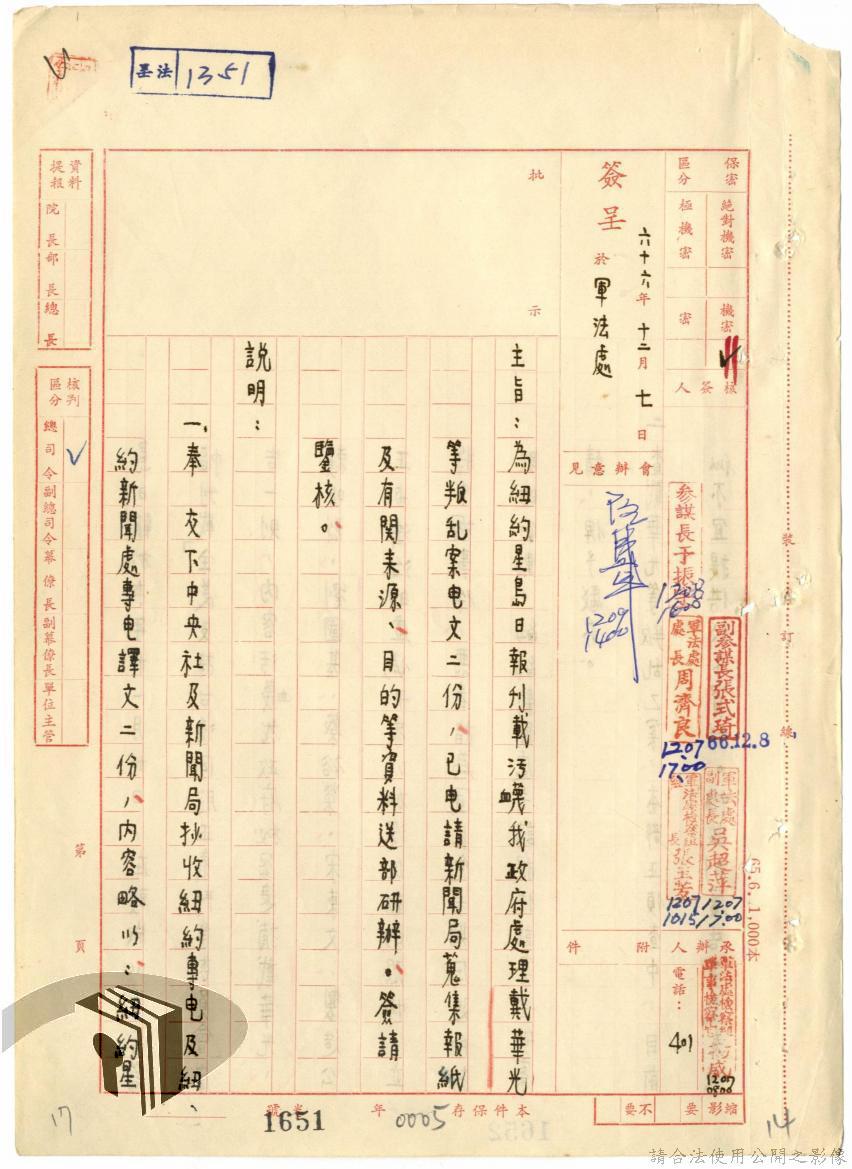 罣法 1351
保密區分
絕對機密
極機密
機密
密
核簽人
簽呈
六十六年十二月七日
於軍法處
會辦意見
1209
1400
參謀長于振
1208
1600
副參謀長張式琦
66.12.8
軍法處處長周濟良
1207
1700
軍法處副處長吳超萍
1207
17.00
1207
1015
承辦人
附件
電話：401
1207
0800
批示
主旨：為紐約星島日報刊載污衊我政府處理戴華光
等叛乱案电文二份，已电請新聞局蒐集報紙
及有関来源、目的等資料送部研辦。簽請
鑒核。
說明：
一、奉 交下中央社及新聞局抄收紐約專电及紐、
約新聞處專电譯文二份，內容略以：紐約星
資料提報
院長
部長
總長
核判區分
總司令
副總司令
幕僚長
副幕僚長
單位主管
第 頁
裝訂線
65.6.1,000本
縮影
要
不要
本件保存 0005 年
號 1651
17
14
請合法使用公開之影像